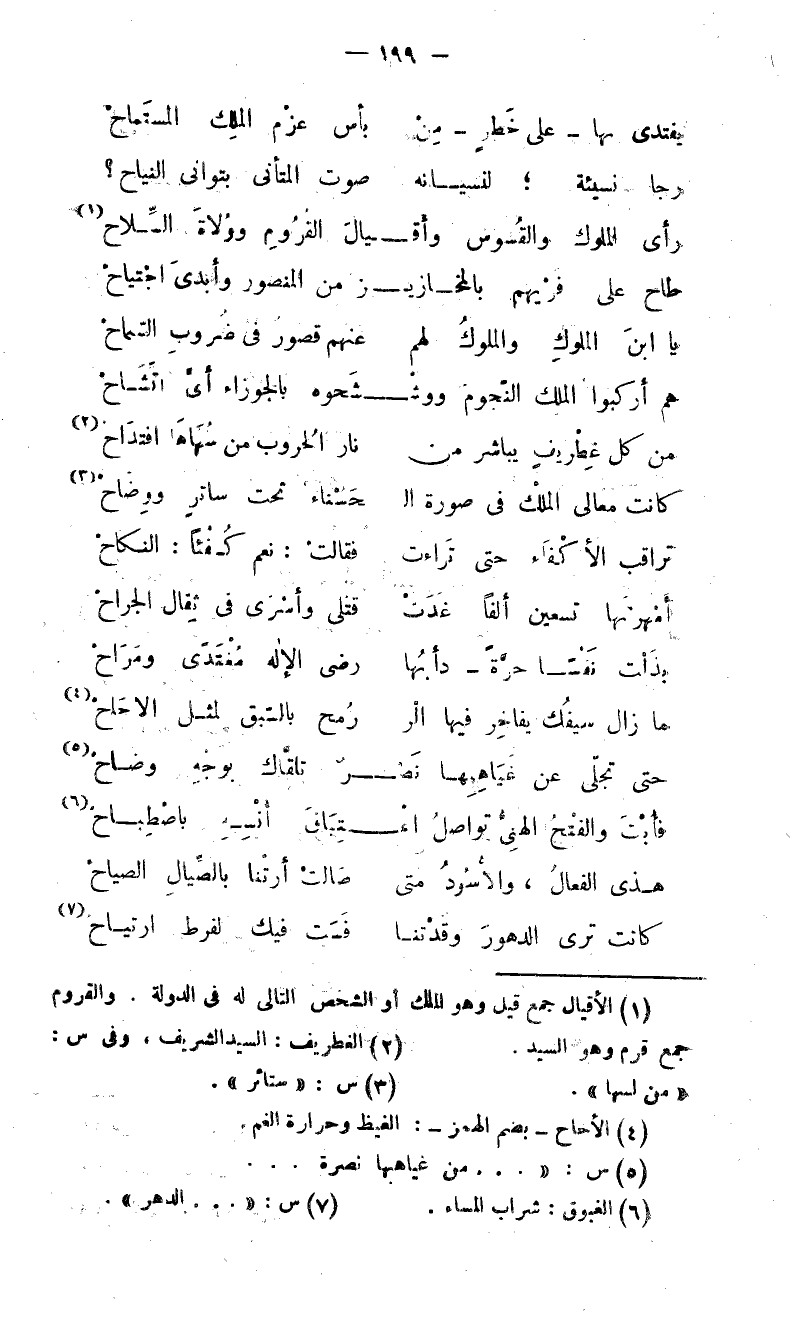 — ١٩٩ —
يفتدى بها – على خَطرٍ – مِنْ بأس عزْم الملك المستَماحْ
رجا نسيئة ؛ لنسيـانه صوت المتأنى بتوانى الفياح ؟
رأى الملوك والقُسوس وأقـيالَ القُرُومِ ووُلاةَ السِّـلاح (١)
طاح على فرْيهم بالمخـازيـز من المنصور وأبدىَ اجْتياحْ
يا ابنَ الملوكِ والملوكُ لهم عنهم قصورٌ فى ضُروبِ السَّماحْ
هم أركبوا الملك النّجومَ ووشْـشَحوه بالجوزاء أىَّ اتِّشَـاحْ
من كل غِطْريفٍ يباشر من نار الحروب من سُهَاهَا افتدَاحْ (٢)
كانت معالى الملْك فى صورة الـ حَسْناء تحت ساترٍ ووِضَاحْ (٣)
تراقب الأكْفَاء حتى تَراءت فقالتْ : نعم كُـفْئاً : النـكاحْ
أمْهرتها تسعين ألفاً غدَتْ قتْلى وأسْرَى فى ثِقال الجراحْ
بذَلت نَفْسًـا حرَّةً – دأبُها رضى الإله مُغْتَدًى ومَرَاحْ
ما زال سيفُك يفاخِر فيها الر رُمح بالسَّبق لمثـل الاحَاحْ (٤)
حتى تجلّى عن غَيَاهِبِهـا نَصْـرٌ تلقَّاك بوجْهٍ وضـاحْ (٥)
فأُبْتَ والفتْحُ الهنِىُّ تواصلُ اغْـتِبَاقَ أنْسِـهِ باصْطِبـاحْ (٦)
هـذى الفعالُ ، والأسْودُ متى صَالتْ أرتْنا بالصِّيالِ الصياحْ
كانت ترى الدهورَ وقدْتنـا فَنَيَت فيك لفرط ارتيـاحْ (٧)
(١) الأقيال جمع قيل وهو الملك أو الشخص التالى له فى الدولة . والقروم
جمع قرم وهو السيد . (٢) الغطريف : السيد الشريف ، وفى س :
« من لسها » . (٣) س : « ستائر » .
(٤) الأحاح – بضم الهمز – : الغيظ وحرارة الغم .
(٥) س : « . . . من غياهبها نصرة . . .
(٦) الغبوق : شراب المساء . (٧) س : « . . . الدهر » .